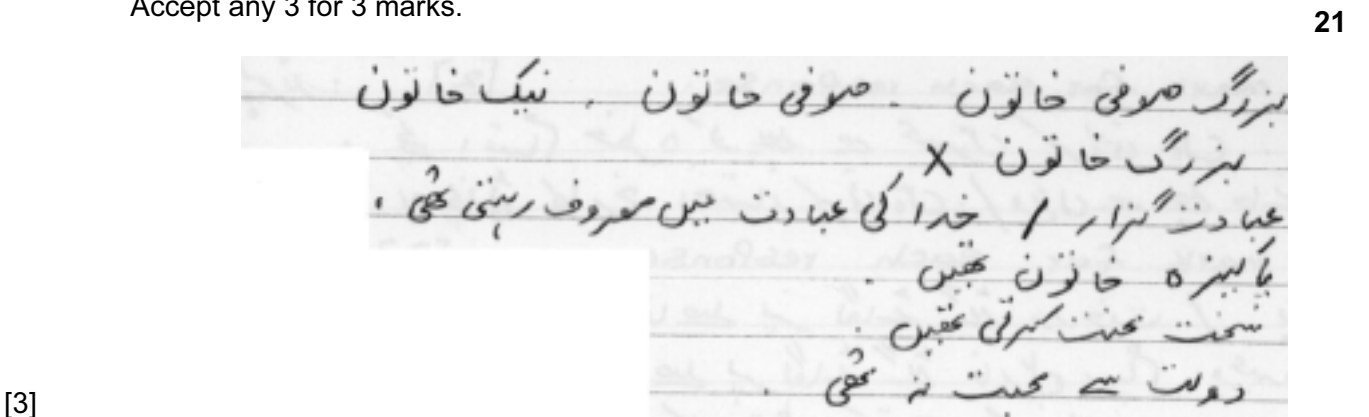 Accept any 3 for 3 marks.
21
بزرگ صوفی خاتون - صوفی خاتون . نیک خاتون
بزرگ خاتون X
عبادت گزار / خدا کی عبادت میں مصروف رہتی تھی ،
پاکیزہ خاتون تھیں .
سخت محنت کرتی تھیں .
دولت سے محبت نہ تھی .
[3]